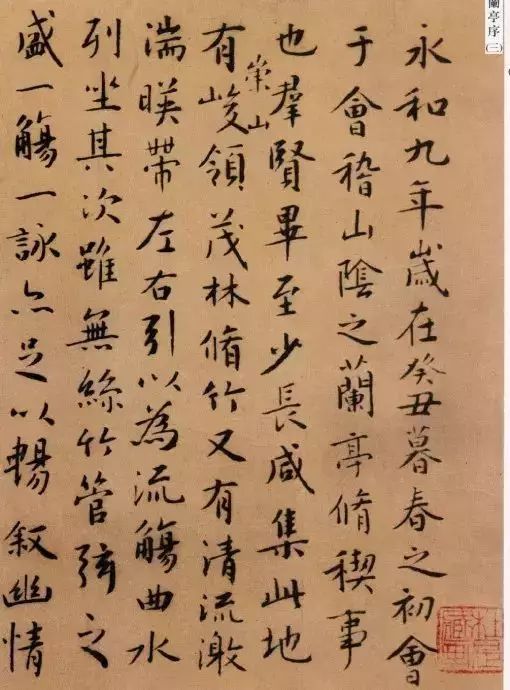 蘭亭序(三)
永和九年歲在癸丑暮春之初會
于會稽山陰之蘭亭脩稧事
也羣賢畢至少長咸集此地
有崇山峻領茂林脩竹又有清流激
湍暎帶左右引以為流觴曲水
列坐其次雖無絲竹管弦之
盛一觴一詠亦足以暢叙幽情